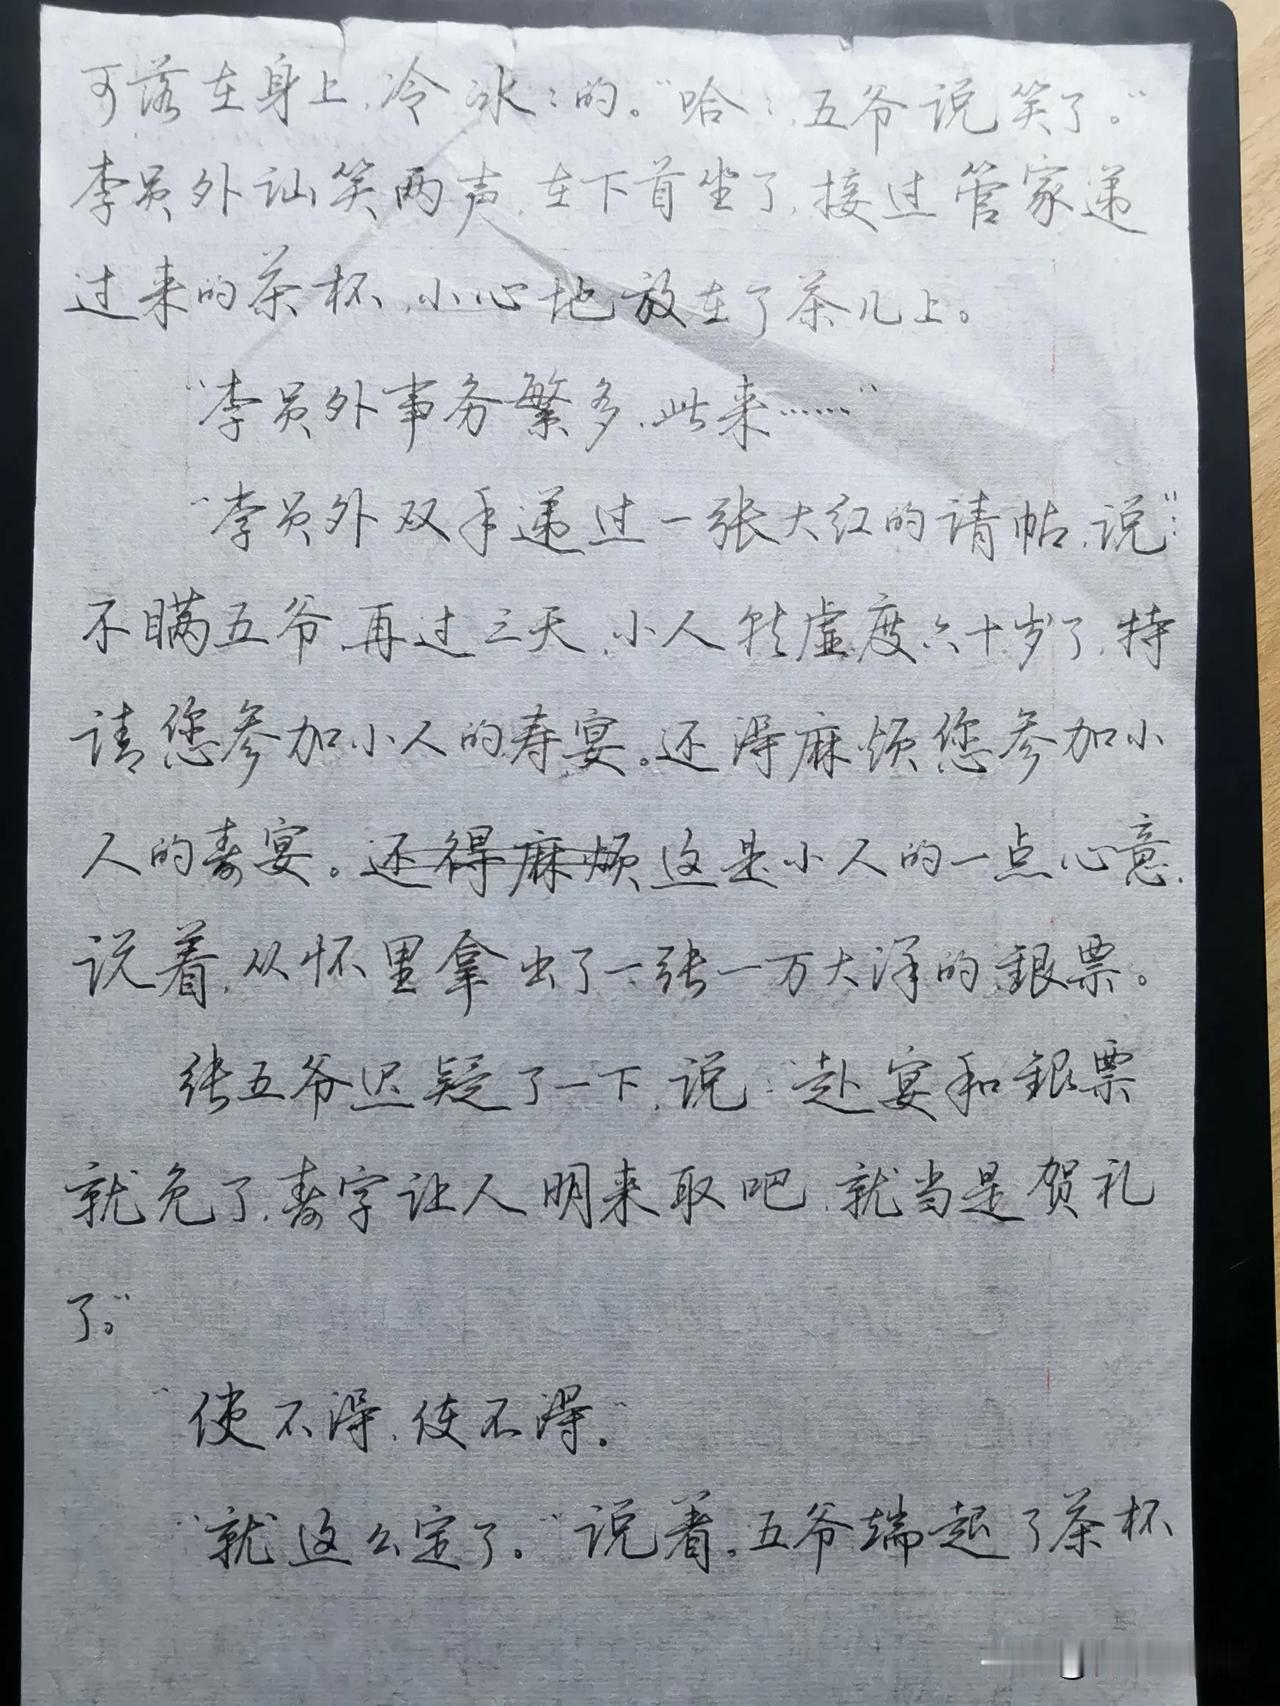 可落在身上,冷冰:的。"哈:,五爷说笑了。"
李员外讪笑两声,在下首坐了,接过管家递
过来的茶杯,小心地放在了茶几上。
"李员外事务繁多,此来……"
"李员外双手递过一张大红的请帖,说":
不瞒五爷,再过三天,小人就虚度六十岁了,特
请您参加小人的寿宴。还得麻烦您参加小
人的寿宴。还得麻烦这是小人的一点心意,
说着,从怀里拿出了一张一万大洋的银票。
张五爷迟疑了一下,说:"赴宴和银票
就免了,寿字让人明来取吧,就当是贺礼
了。"
"使不得,使不得。"
"就这么定了。"说着。五爷端起了茶杯